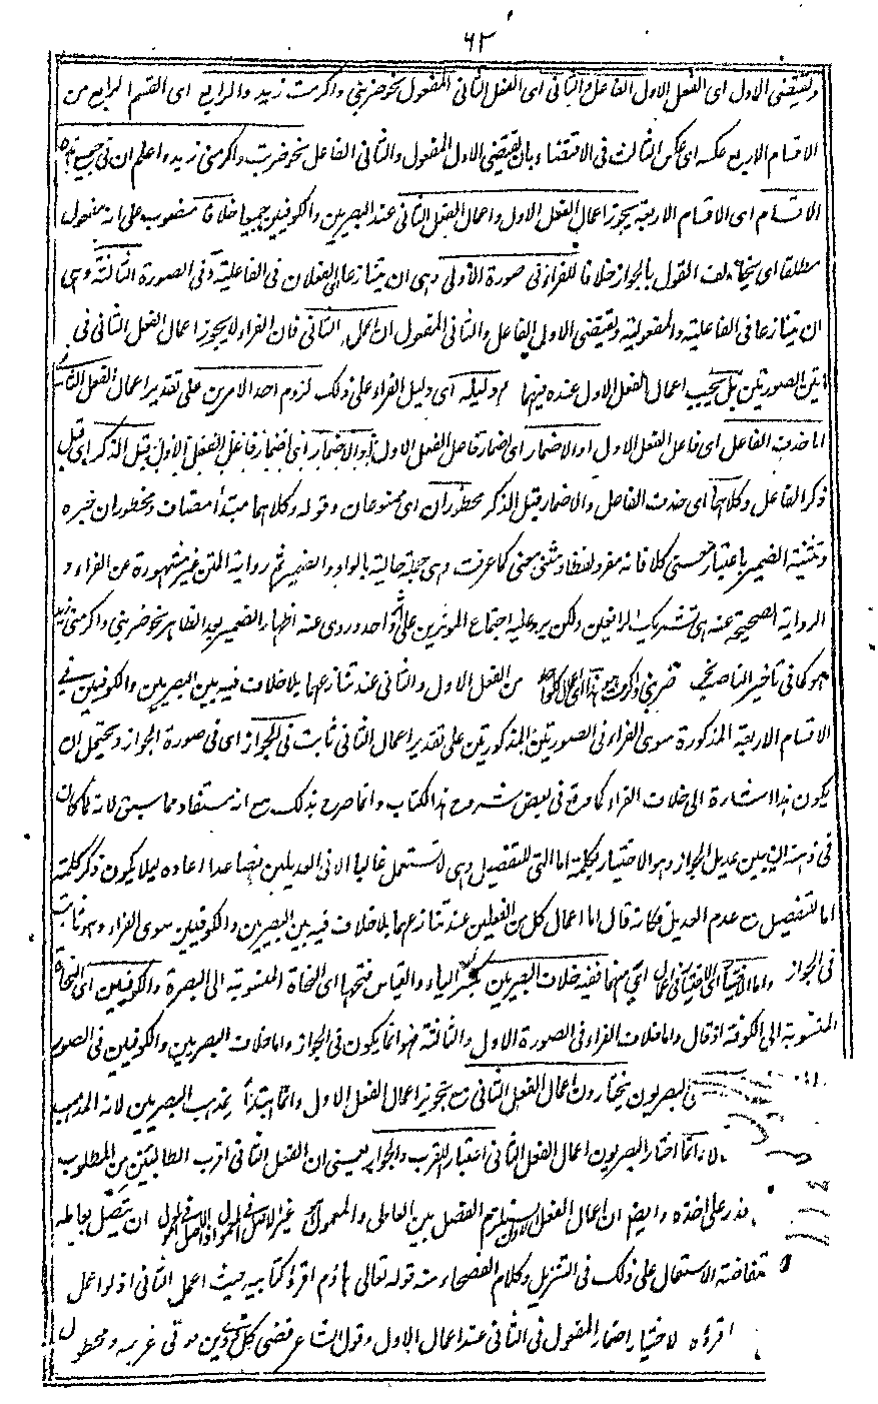 ٦٢
ويقتضى الاول اى الفعل الاول الفاعل والثانى اى الفعل الثانى المفعول نحو ضربنى واكرمت زيدا والرابع اى القسم الرابع من
الاقسام الاربع عكسه اى عكس الثالث فى الاقتضاء بان يقتضى الاول المفعول والثانى الفاعل نحو ضربت واكرمنى زيد واعلم ان فى جميع هذه
الاقسام اى الاقسام الاربعة يجوز اعمال الفعل الاول واعمال الفعل الثانى عند البصريين والكوفيين جميعا خلافا منصوب على انه مفعول
مطلقا اى يخالف القول بالجواز خلافا للفراء فى صورة الأولى وهى ان يتنازعا اى الفعلان فى الفاعلية وفى الصورة الثالثة وهى
ان يتنازعا فى الفاعلية والمفعولية ويقتضى الاول الفاعل والثانى المفعول ان اعمل الثانى فان الفراء لا يجوز اعمال الفعل الثانى فى
هاتين الصورتين بل يجب اعمال الفعل الاول عنده فيهما ودليله اى دليل الفراء على ذلك لزوم احد الامرين على تقدير اعمال الفعل الثانى
اما حذف الفاعل اى فاعل الفعل الاول او الاضمار اى اضمار فاعل الفعل الاول قبل الذكر اى قبل
ذكر الفاعل وكلاهما اى حذف الفاعل والاضمار قبل الذكر محظوران اى ممنوعان وقوله وكلاهما مبتدأ مضاف ومحظوران خبره
وتثنية الضمير باعتبار معنى كلا فانه مفرد لفظا ومثنى معنى كما عرفت وهى جملة حالية بالواو والضمير ثم رواية المتن غير مشهورة عن الفراء و
الرواية الصحيحة عنه هى تشريك الرافعين ولكن يرد عليه اجتماع المؤثرين على اثر واحد وروى عنه اظهار الضمير بعد الظاهر نحو ضربنى واكرمنى زيد
هو كما فى تأخير الناصب نحو ضربنى واكرمت زيدا هو هذا اى اعمال كل واحد من الفعل الاول والثانى عند تنازعهما بلا خلاف فيه بين البصريين والكوفيين فى
الاقسام الاربعة المذكورة سوى الفراء فى الصورتين المذكورتين على تقدير اعمال الثانى ثابت فى الجواز اى فى صورة الجواز ويحتمل ان
يكون هذا اشارة الى خلاف الفراء كما وقع فى بعض شروح هذا الكتاب وانما صرح بذلك مع انه مستفاد مما سبق لانه لما كان
فى ذهنه ان يبين عديل الجواز وهو الاختيار بكلمة اما التى للتفصيل وهى لا تستعمل غالبا الا فى العديلين فصاعدا اعاده ليلا يكون ذكر كلمة
اما للتفصيل مع عدم العديل فكانه قال اما اعمال كل من الفعلين عند تنازعهما بلا خلاف فيه بين البصريين والكوفيين سوى الفراء وهو ثابت
فى الجواز واما الاختيار اى الاختيار فى اعمال اى منهما ففيه خلاف البصريين بكسر الياء والقياس فتحها اى النحاة المنسوبة الى البصرة والكوفيين اى النحاة
المنسوبة الى الكوفة اذ قال واما خلاف الفراء فى الصورة الاول والثالثة فهو انما يكون فى الجواز واما خلاف البصريين والكوفيين فى الصور
البصريون يختارون اعمال الفعل الثانى مع تجويز اعمال الفعل الاول وانما ابتدأ بمذهب البصريين لانه المذهب
لانه انما اختار البصريون اعمال الفعل الثانى اعتبارا للقرب والجوار يعنى ان الفعل الثانى اقرب الطالبين من المطلوب
على اخذه وايضا ان اعمال الفعل الاول يستلزم الفصل بين العامل والمعمول ان يتصل بعامله
الاستعمال على ذلك فى التنزيل وكلام الفصحاء منه قوله تعالى هاؤم اقرءوا كتابيه حيث اعمل الثانى اذ لو اعمل
اقرؤه لاختيار اضمار المفعول فى الثانى عند اعمال الاول وقول الشاعر قضى كل ذى دين فوفى غريمه وممطول